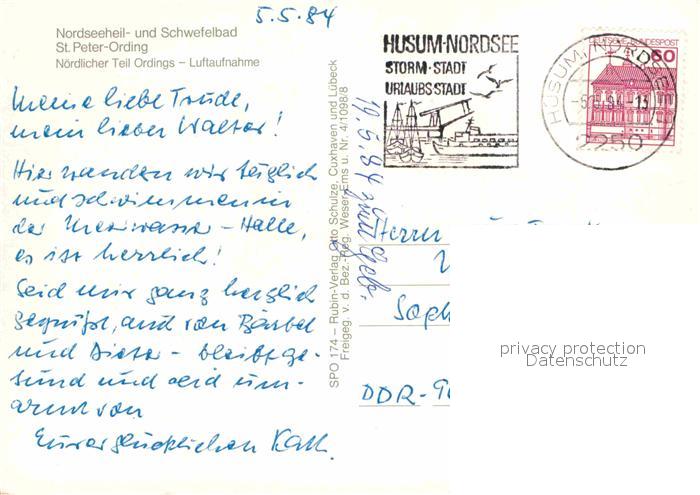 5.5.84
Nordseeheil- und Schwefelbad
St. Peter-Ording
Nördlicher Teil Ordings – Luftaufnahme
Meine liebe Trude,
mein lieber Walter!
Hier wandern wir täglich
und schwimmen in
der Meerwasser-Halle,
es ist herrlich!
Seid mir ganz herzlich
gegrüßt, auch von Bärbel
und Dieter - bleibt ge-
sund und seid um-
armt von
Eurer glücklichen Käth.
SPO 174 – Rubin-Verlag Otto Schulze, Cuxhaven und Lübeck
Freigeg. v. d. Bez.-Reg. Weser/Ems u. Nr. 4/1098/8
19.5.84 zum Geb.
HUSUM·NORDSEE
STORM·STADT
URLAUBSSTADT
HUSUM, NORDSEE
-5.5.84-13
2250
DEUTSCHE BUNDESPOST
60
Herrn
Soph
DDR-90
privacy protection
Datenschutz